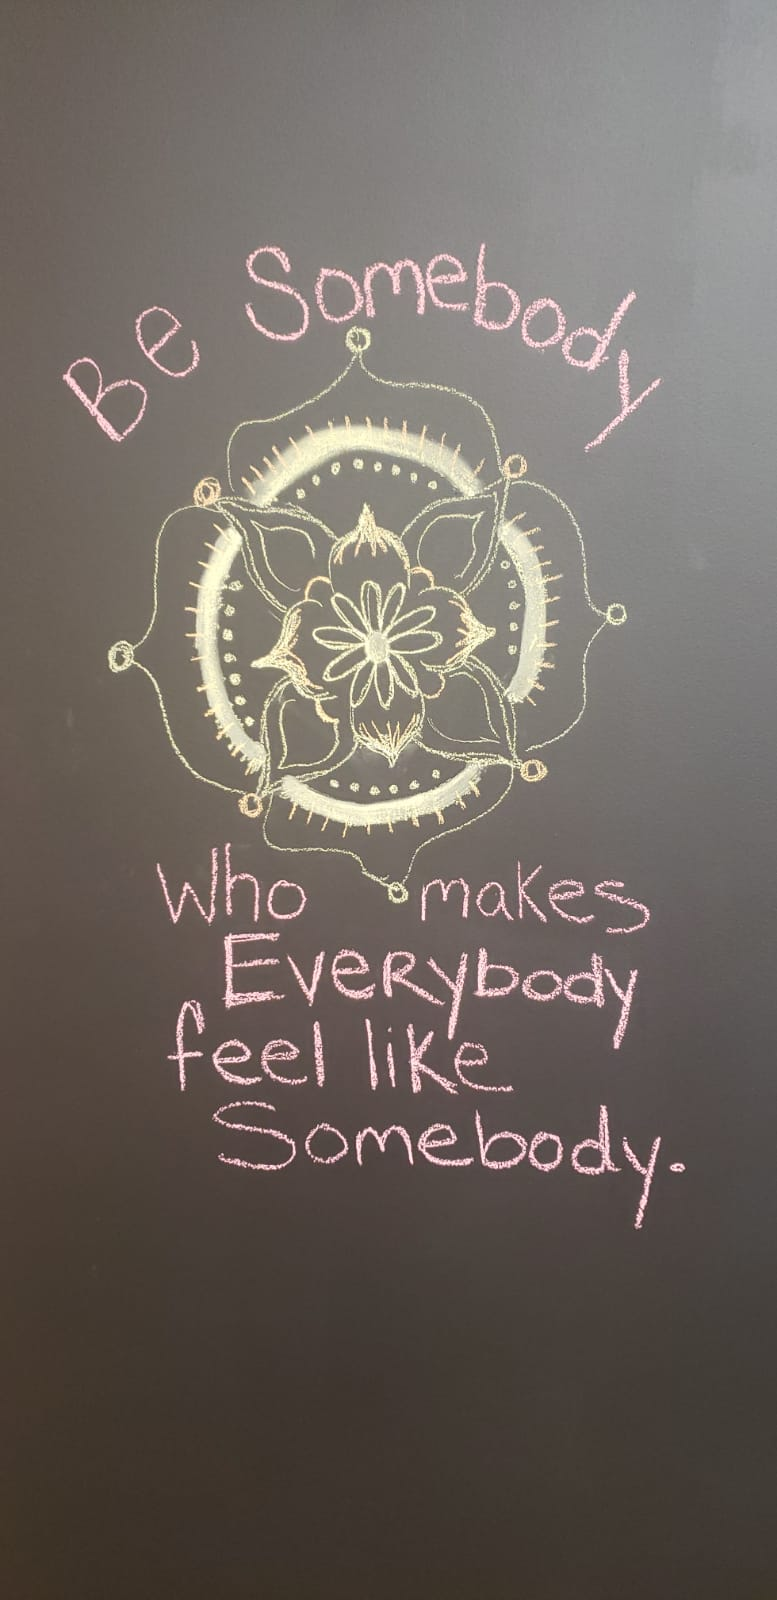 Be Somebody
Who makes
Everybody
feel like
Somebody.